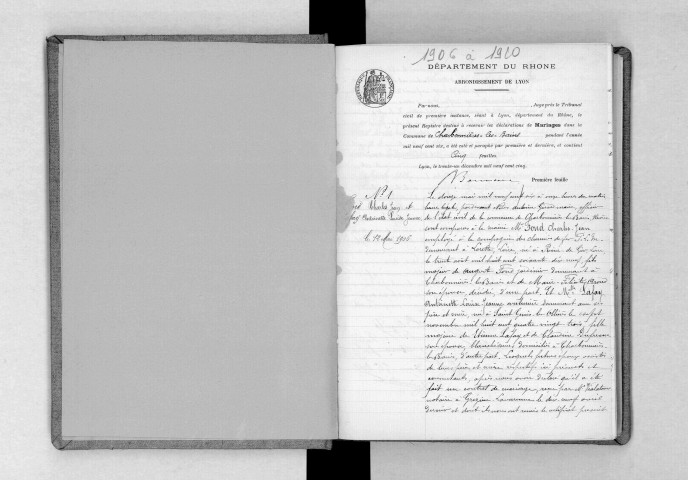 1906 à 1910
DÉPARTEMENT DU RHONE
ARRONDISSEMENT DE LYON
Par nous, Juge près le Tribunal
civil de première instance, séant à Lyon, département du Rhône, le
présent Registre destiné à recevoir les déclarations de Mariages dans la
Commune de Charbonnières-les-Bains pendant l'année
mil neuf cent six, a été coté et paraphé par première et dernière, et contient
Cinq feuilles.
Lyon, le trente-un décembre mil neuf cent cinq.
Première feuille
N° 1
Charles Jean et
Lafay Antoinette Louise Jeanne
le 12 Mai 1906
Le douze mai mil neuf cent six à onze heures du matin
l'état civil de la commune de Charbonnières les Bains, Rhône
sont comparus à la mairie Mr Fond Charles Jean
employé à la compagnie des chemins de fer P.L.M.
demeurant à Lorette, Loire, né à Rive de Gier, Loire
le trente août mil huit cent soixante dix neuf, fils
majeur de Auguste Fond jardinier demeurant à
Charbonnières les Bains et de Marie
son épouse, décédée, d'une part, Et Mlle Lafay
Antoinette Louise Jeanne couturière demeurant avec ses
père et mère, née à Saint Genis les Ollières le sept
novembre mil huit cent quatre vingt trois, fille
majeure de Etienne Lafay et de Claudine
son épouse, Blanchisseurs, domiciliés à Charbonnières
les Bains, d'autre part. Lesquels futurs époux assistés
de leurs père et mère respectifs ici présents et
consentants, après nous avoir déclaré qu'il a été
fait un contrat de mariage, reçu par Mr
notaire à Grézieu Lavarenne le dix neuf avril
dernier et dont ils nous ont remis le certificat prescrit